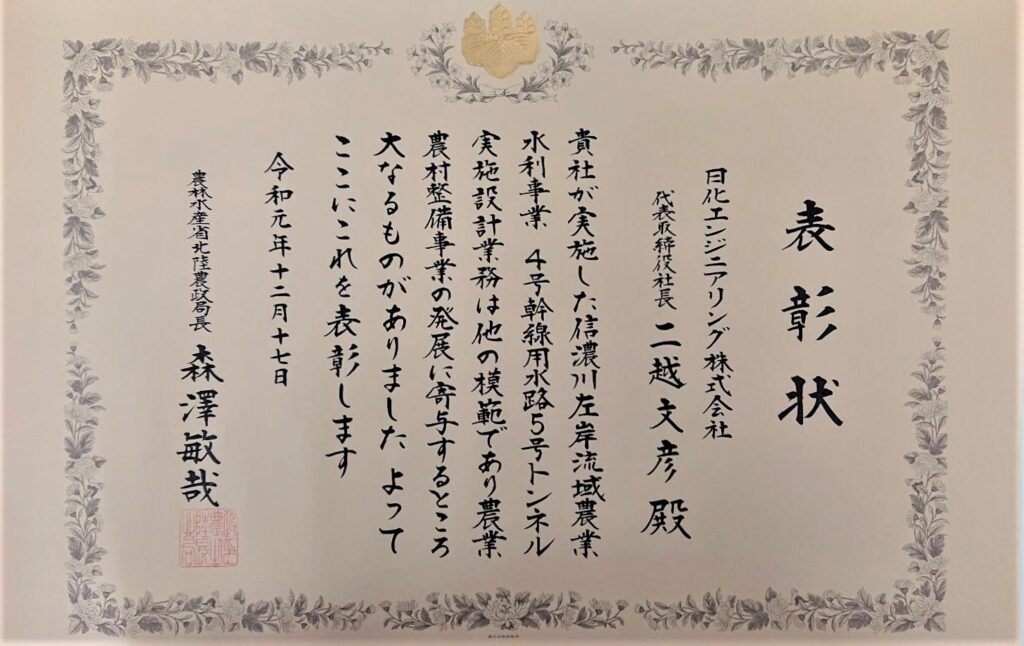 表彰状
日化エンジニアリング株式会社
代表取締役社長 二越文彦殿
貴社が実施した信濃川左岸流域農業
水利事業 4号幹線用水路5号トンネル
実施設計業務は他の模範であり農業
農村整備事業の発展に寄与するところ
大なるものがありました よって
ここにこれを表彰します
令和元年十二月十七日
農林水産省北陸農政局長 森澤敏哉